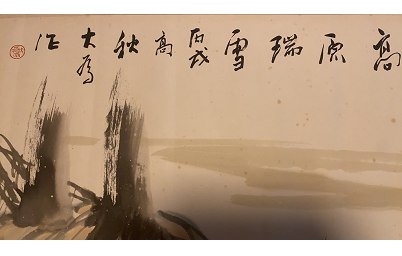 髙原瑞雪丙戌高秋大為作